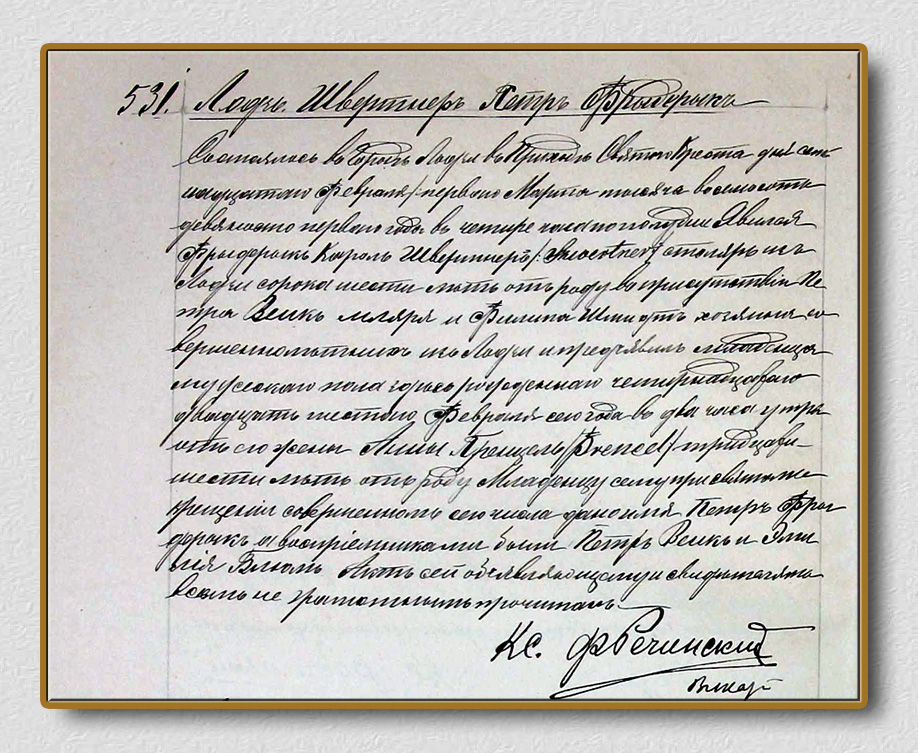 531. Лодзь. Швертнеръ Петръ Фрыдерыкъ
Состоялось въ городѣ Лодзи въ Приходѣ Святого Креста дня сем-
надцатаго Февраля /: перваго Марта тысяча восемьсотъ
девяносто перваго года въ четыре часа пополудни. Явился
Фрыдерыкъ Кароль Швертнеръ /: Swoertner / столяръ изъ
Лодзи сорока шести лѣтъ отъ роду въ присутствіи Пе
тра Венкъ мляря и Филипа Шмидтъ хозяина со
вершеннолѣтнихъ изъ Лодзи и предъявилъ младенца
мужескаго пола здѣсь рожденнаго четырнадцатаго
двадцать шестаго Февраля сего года въ два часа утра
отъ его жены Анны Пренцель /Prencel/ тридцати-
шести лѣтъ отъ роду Младенцу сему при святомъ
крещеніи совершенномъ сего числа дано имя Петръ Фры
дерыкъ а воспріемниками были Петръ Венкъ и Эми
лія Блюмъ Актъ сей объявляющему и свидѣтелямъ
всѣмъ неграмотнымъ прочитанъ.
Кс. Ф Речинский
Викарій